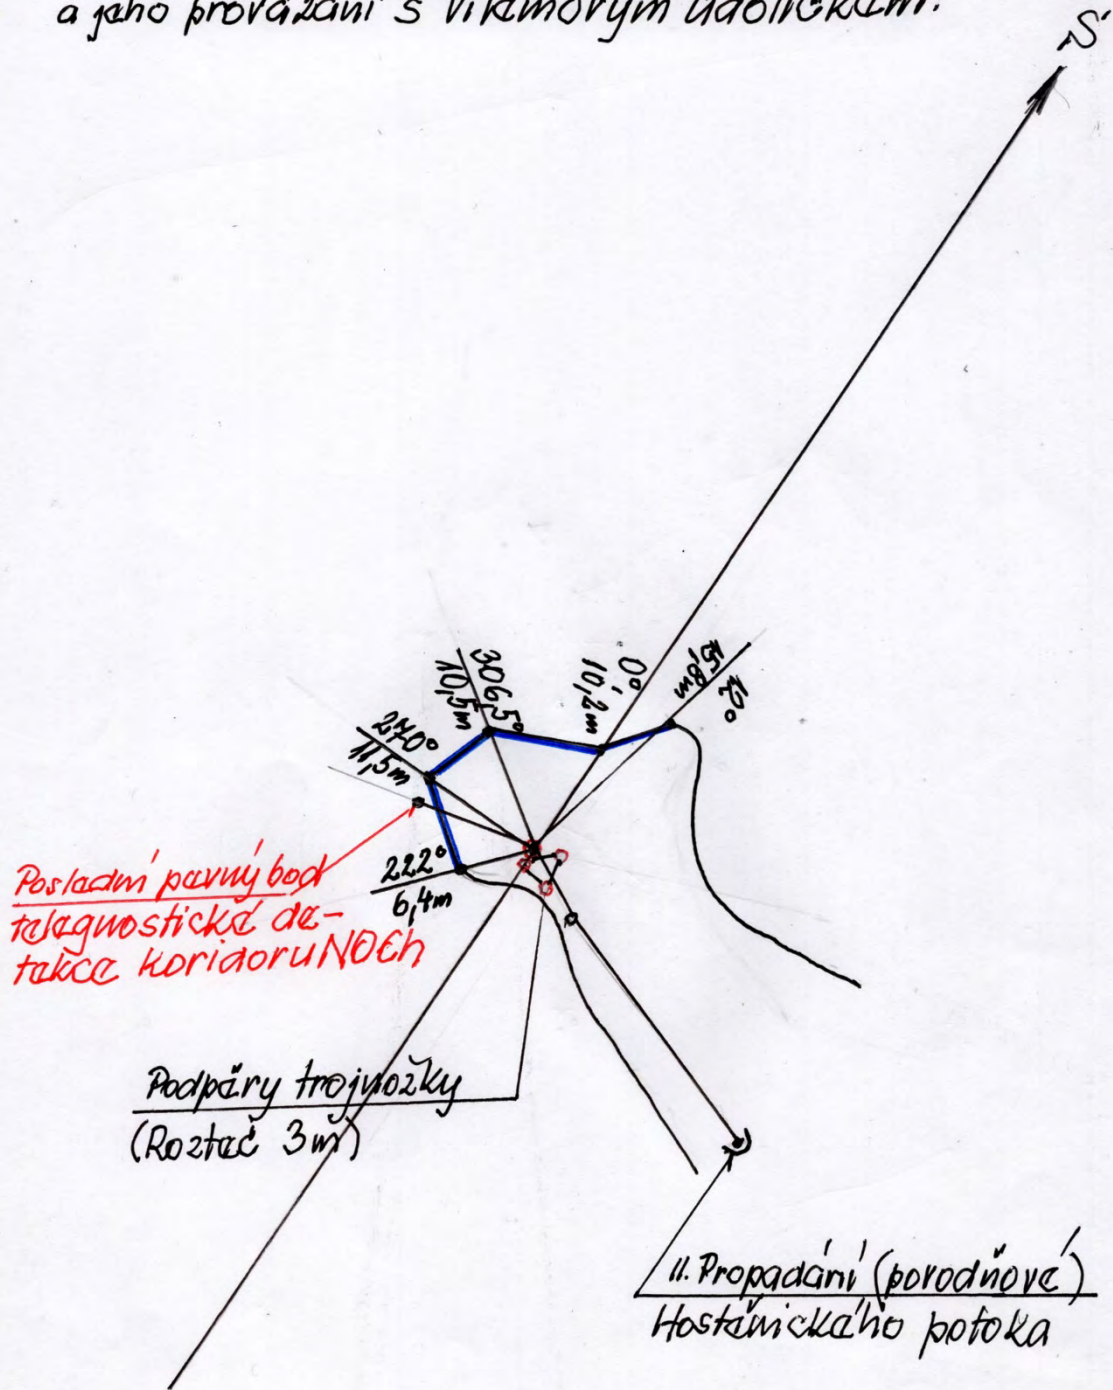 a jeho provázání s Vikimovým údolíčkem.
S
0°
10,2m
15,8m
12°
306,5°
10,5m
270°
11,5m
222°
6,4m
Poslední pevný bod
telegnostické de-
tekce koridoru NOCh
Podpěry trojnožky
(Rozteč 3m)
II. Propadání (povodňové)
Hostěnického potoka